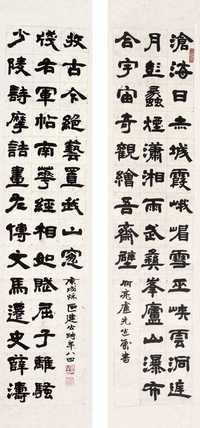 滄海日赤城霞峨嵋雪巫峽雲洞庭
月彭蠡煙瀟湘雨武彝峯廬山瀑布
合宇宙奇觀繪吾齋壁
先生屬書
少陵詩摩詰畫左傳文馬遷史薛濤
牋右軍帖南華經相如賦屈子離騷
收古今絕藝置我山窗
時年八四